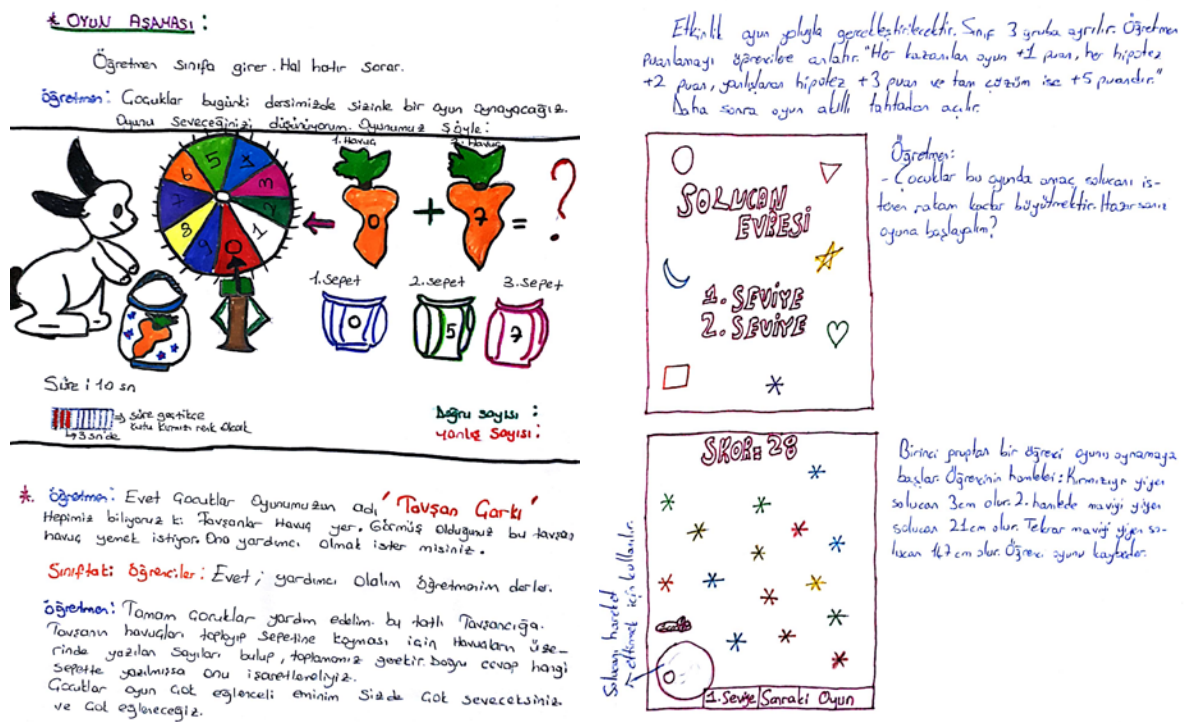 * OYUN AŞAMASI :
Öğretmen sınıfa girer. Hal hatır sorar.
Öğretmen: Çocuklar bugünkü dersimizde sizinle bir oyun oynayacağız.
Oyunu seveceğinizi düşünüyorum. Oyunumuz şöyle:
1. Havuç
2. Havuç
5
4
3
2
1
0
9
8
7
6
0 + 7 = ?
1. Sepet
2. Sepet
3. Sepet
0
5
7
Süre : 10 sn
süre geçtikçe
kutu kırmızı renk olacak
→3 sn'de
Doğru sayısı :
Yanlış Sayısı :
*. Öğretmen: Evet Çocuklar Oyunumuzun adı 'Tavşan Çarkı'
Hepimiz biliyoruz ki Tavşanlar Havuç yer. Görmüş olduğunuz bu tavşan
havuç yemek istiyor. Ona yardımcı olmak ister misiniz.
Sınıftaki öğrenciler: Evet, yardımcı olalım öğretmenim derler.
Öğretmen: Tamam çocuklar yardım edelim bu tatlı Tavşancığa.
Tavşanın havuçları toplayıp sepetine koyması için Havuçların üze-
rinde yazılan sayıları bulup, toplamamız gerekir. Doğru cevap hangi
Sepette yazılmışsa onu işaretlemeliyiz.
Çocuklar oyun çok eğlenceli eminim Sizde çok seveceksiniz
ve çok eğleneceğiz.
Etkinlik oyun yoluyla gerçekleştirilecektir. Sınıf 3 gruba ayrılır. Öğretmen
puanlamayı öğrencilere anlatır. "Her kazanılan oyun +1 puan, her hipotez
+2 puan, yanlışlanan hipotez +3 puan ve tam çözüm ise +5 puandır."
Daha sonra oyun akıllı tahtadan açılır.
SOLUCAN
EVRESİ
1. SEVİYE
2. SEVİYE
Öğretmen:
- Çocuklar bu oyunda amaç solucanı is-
tenen rakam kadar büyütmektir. Hazırsanız
oyuna başlayalım?
SKOR: 28
Solucanı hareket
ettirmek için kullanılır.
1. Seviye
Sonraki Oyun
Birinci gruptan bir öğrenci oyunu oynamaya
başlar. Öğrencinin hamleleri: Kırmızıyı yiyen
solucan 3cm olur. 2. hamlede maviyi yiyen
solucan 21cm olur. Tekrar maviyi yiyen so-
lucan 147cm olur. Öğrenci oyunu kaybeder.